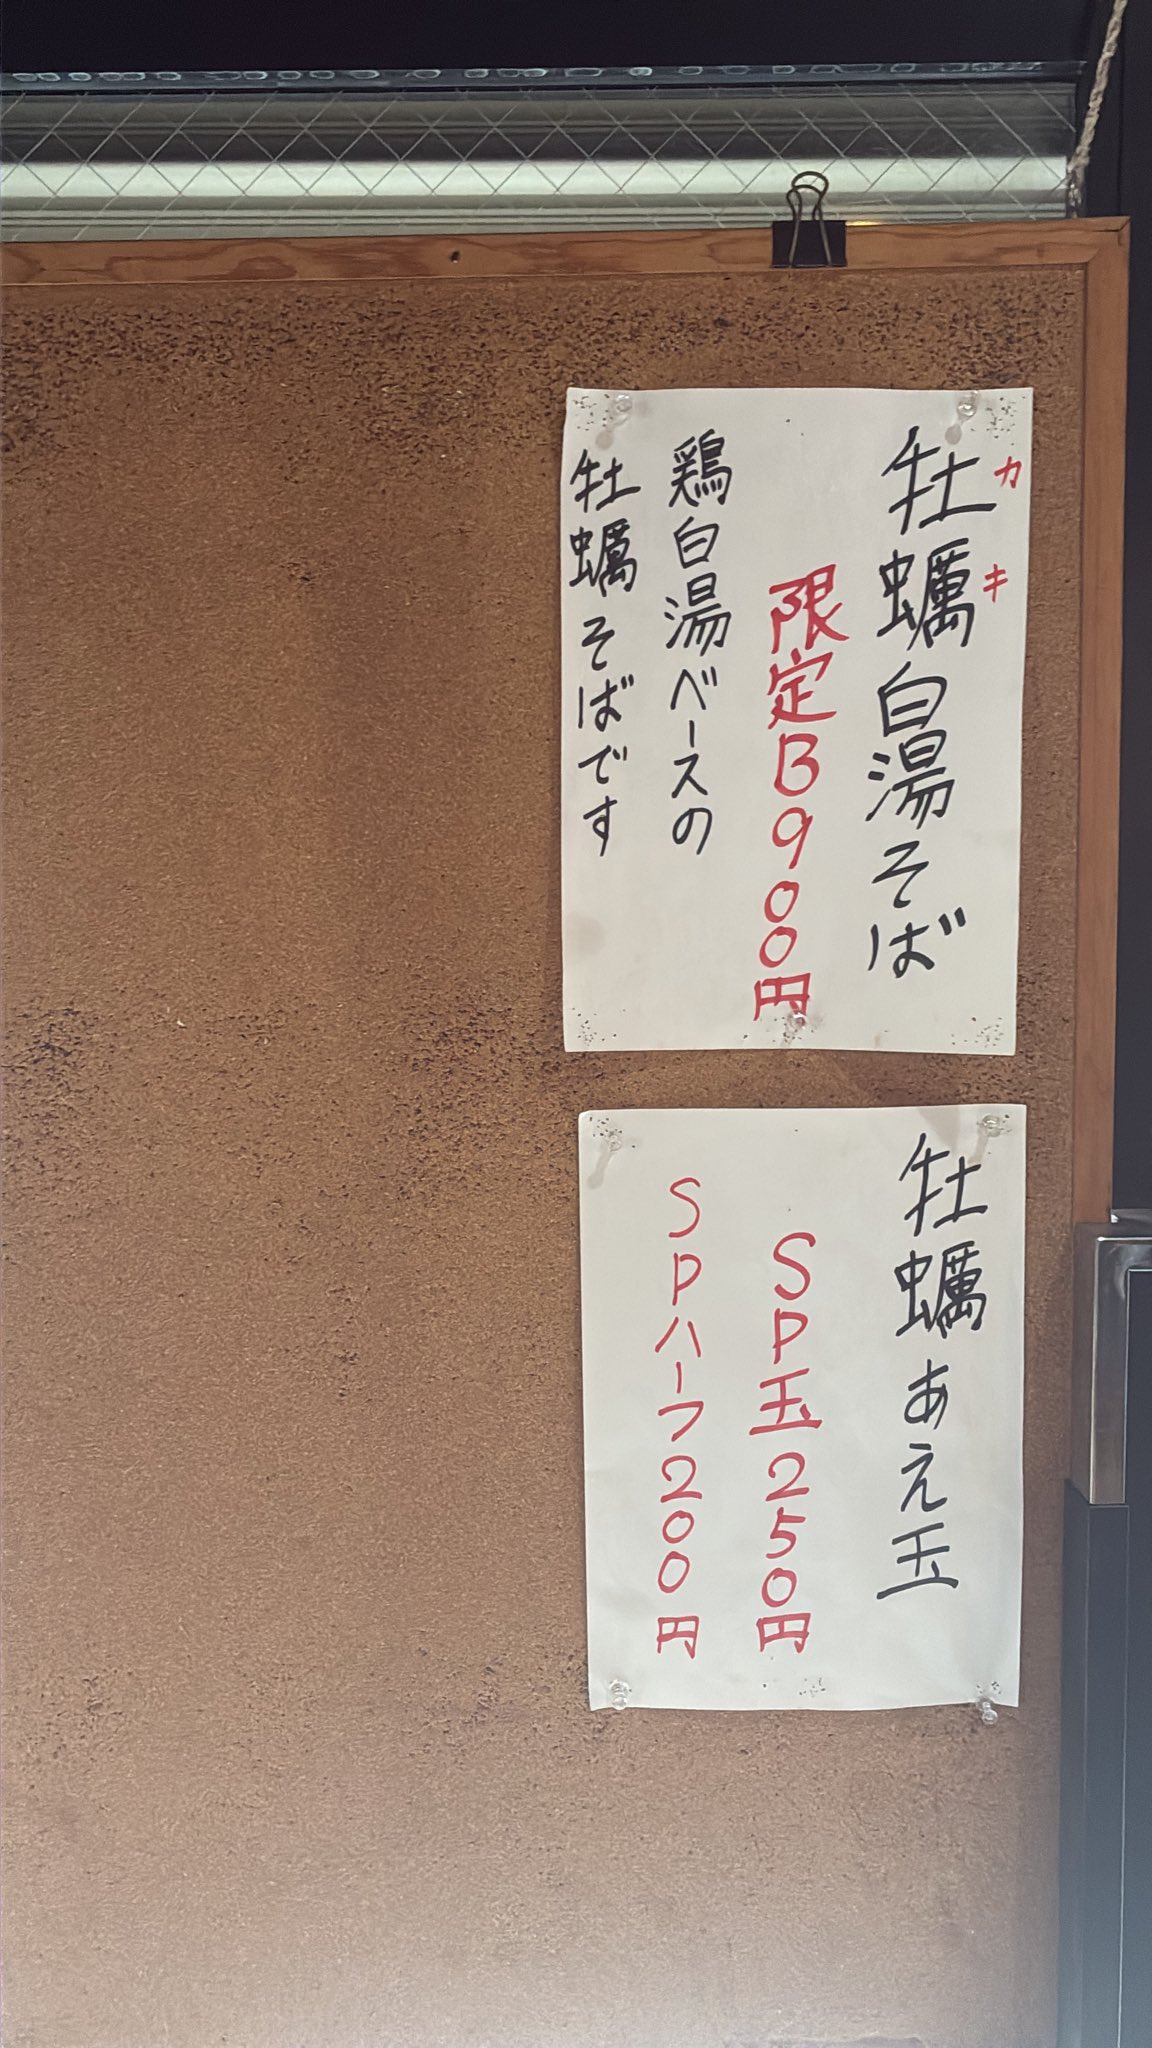 カキ
牡蠣白湯そば
限定B900円
鶏白湯ベースの
牡蠣そばです
牡蠣あえ玉
SP玉250円
SPハーフ200円